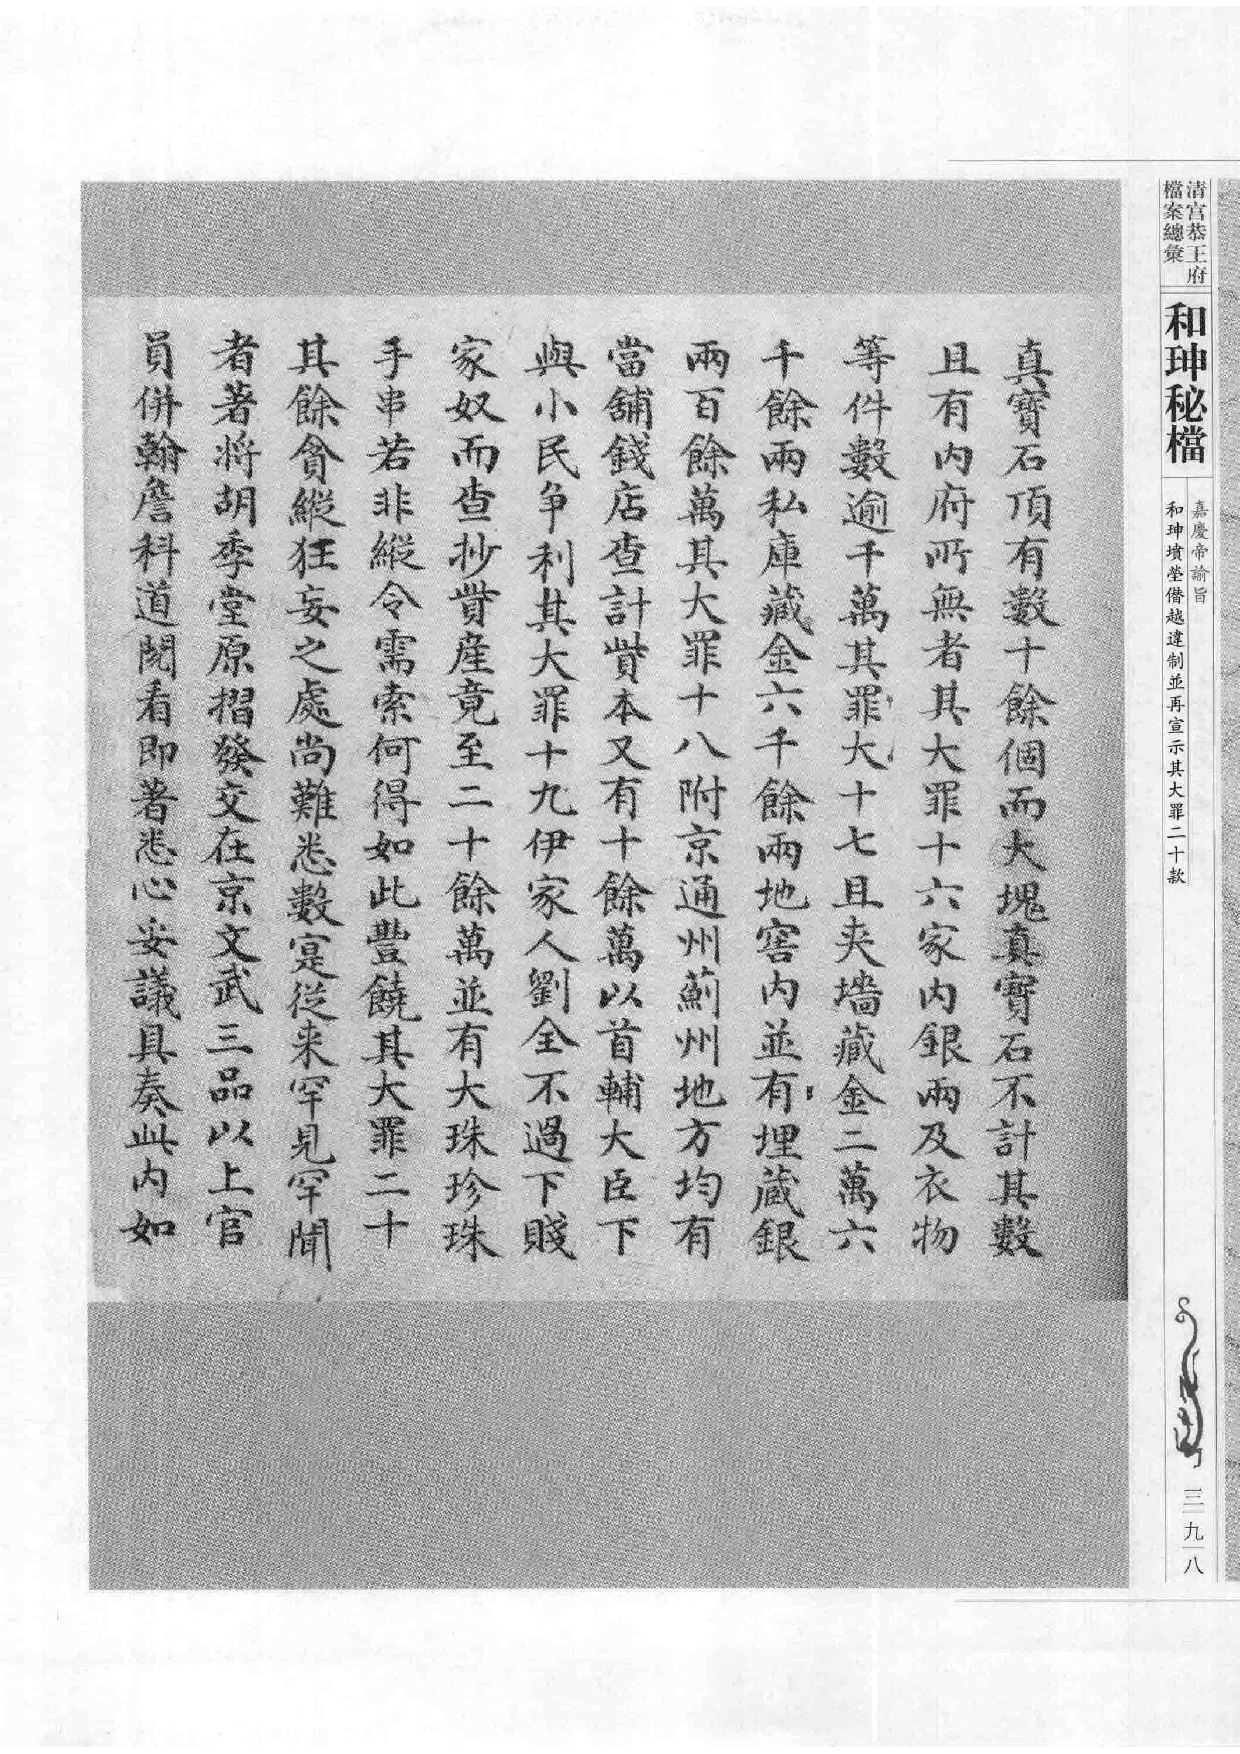 清宮恭王府
檔案總彙
和珅秘檔
嘉慶帝諭旨
和珅墳塋僭越違制並再宣示其大罪二十款
三九八
真寶石頂有數十餘個而大塊真寶石不計其數
且有内府所無者其大罪十六家内銀兩及衣物
等件數逾千萬其罪大十七且夾墻藏金二萬六
千餘兩私庫藏金六千餘兩地窖内並有埋藏銀
兩百餘萬其大罪十八附京通州薊州地方均有
當舖錢店查計貲本又有十餘萬以首輔大臣下
與小民爭利其大罪十九伊家人劉全不過下賤
家奴而查抄貲産竟至二十餘萬並有大珠珍珠
手串若非縱令需索何得如此豐饒其大罪二十
其餘貪縱狂妄之處尚難悉數寔從来罕見罕聞
者著将胡季堂原摺發交在京文武三品以上官
員併翰詹科道閱看即著悉心妥議具奏此内如